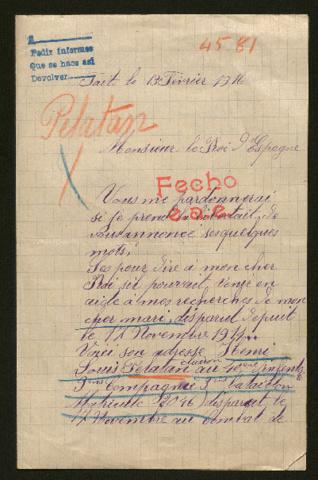 Pedir informes
Que se hace así
Devolver
45.81
Fait le 13 Février 1916
Pelatan
Monsieur le Roi d'Espagne
Fecho
Vous me pardonnerai
si je prend la de
quelques
mots,
Ses pour dire a mon cher
Roi sil pourrait venir en
aide a mes recherches de mon
cher mari, disparut depuit
le 12 Novembre 1914..
Voici son adresse
Louis Pelatan au
Compagnie Bataillon
Matricule disparut le
12 Novembre au combat de